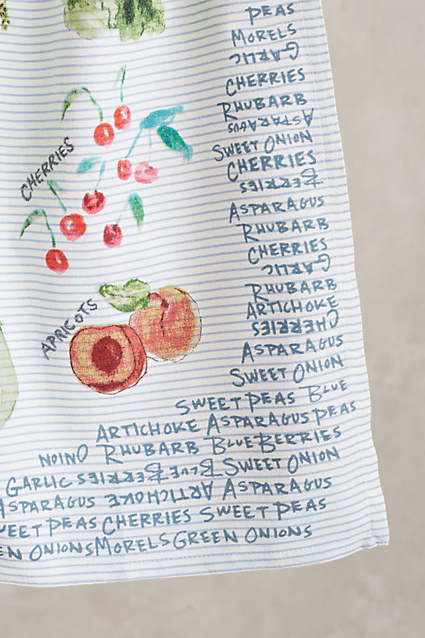 PEAS
MORELS
GARLIC
CHERRIES
RHUBARB
ASPARAGUS
SWEET ONION
CHERRIES
BERRIES
ASPARAGUS
RHUBARB
CHERRIES
GARLIC
RHUBARB
ARTICHOKE
CHERRIES
ASPARAGUS
SWEET ONION
SWEET PEAS BLUE
ARTICHOKE ASPARAGUS PEAS
ONION RHUBARB BLUEBERRIES
GARLIC BLUEBERRIES SWEET ONION
ASPARAGUS ARTICHOKE ASPARAGUS
WEET PEAS CHERRIES SWEET PEAS
EN ONIONS MORELS GREEN ONIONS
CHERRIES
APRICOTS